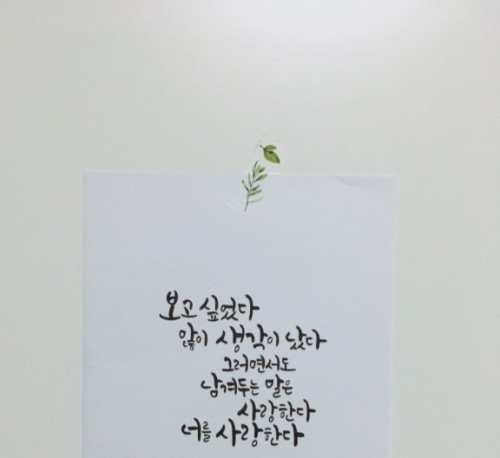 보고 싶었다
많이 생각이 났다
그러면서도
남겨두는 말은
사랑한다
너를 사랑한다